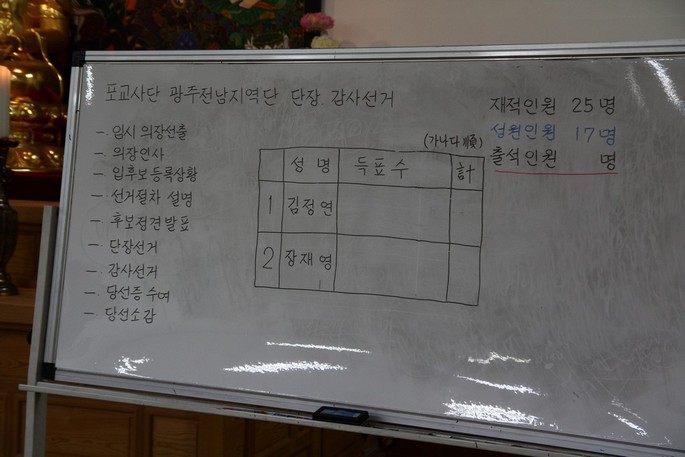 포교사단 광주전남지역단 단장. 감사선거
- 임시 의장선출
- 의장인사
- 입후보등록상황
- 선거절차 설명
- 후보정견발표
- 단장선거
- 감사선거
- 당선증 수여
- 당선소감
(가나다 順)
성 명 득표수 計
1 김정연
2 장재영
재적인원 25명
성원인원 17명
출석인원 명